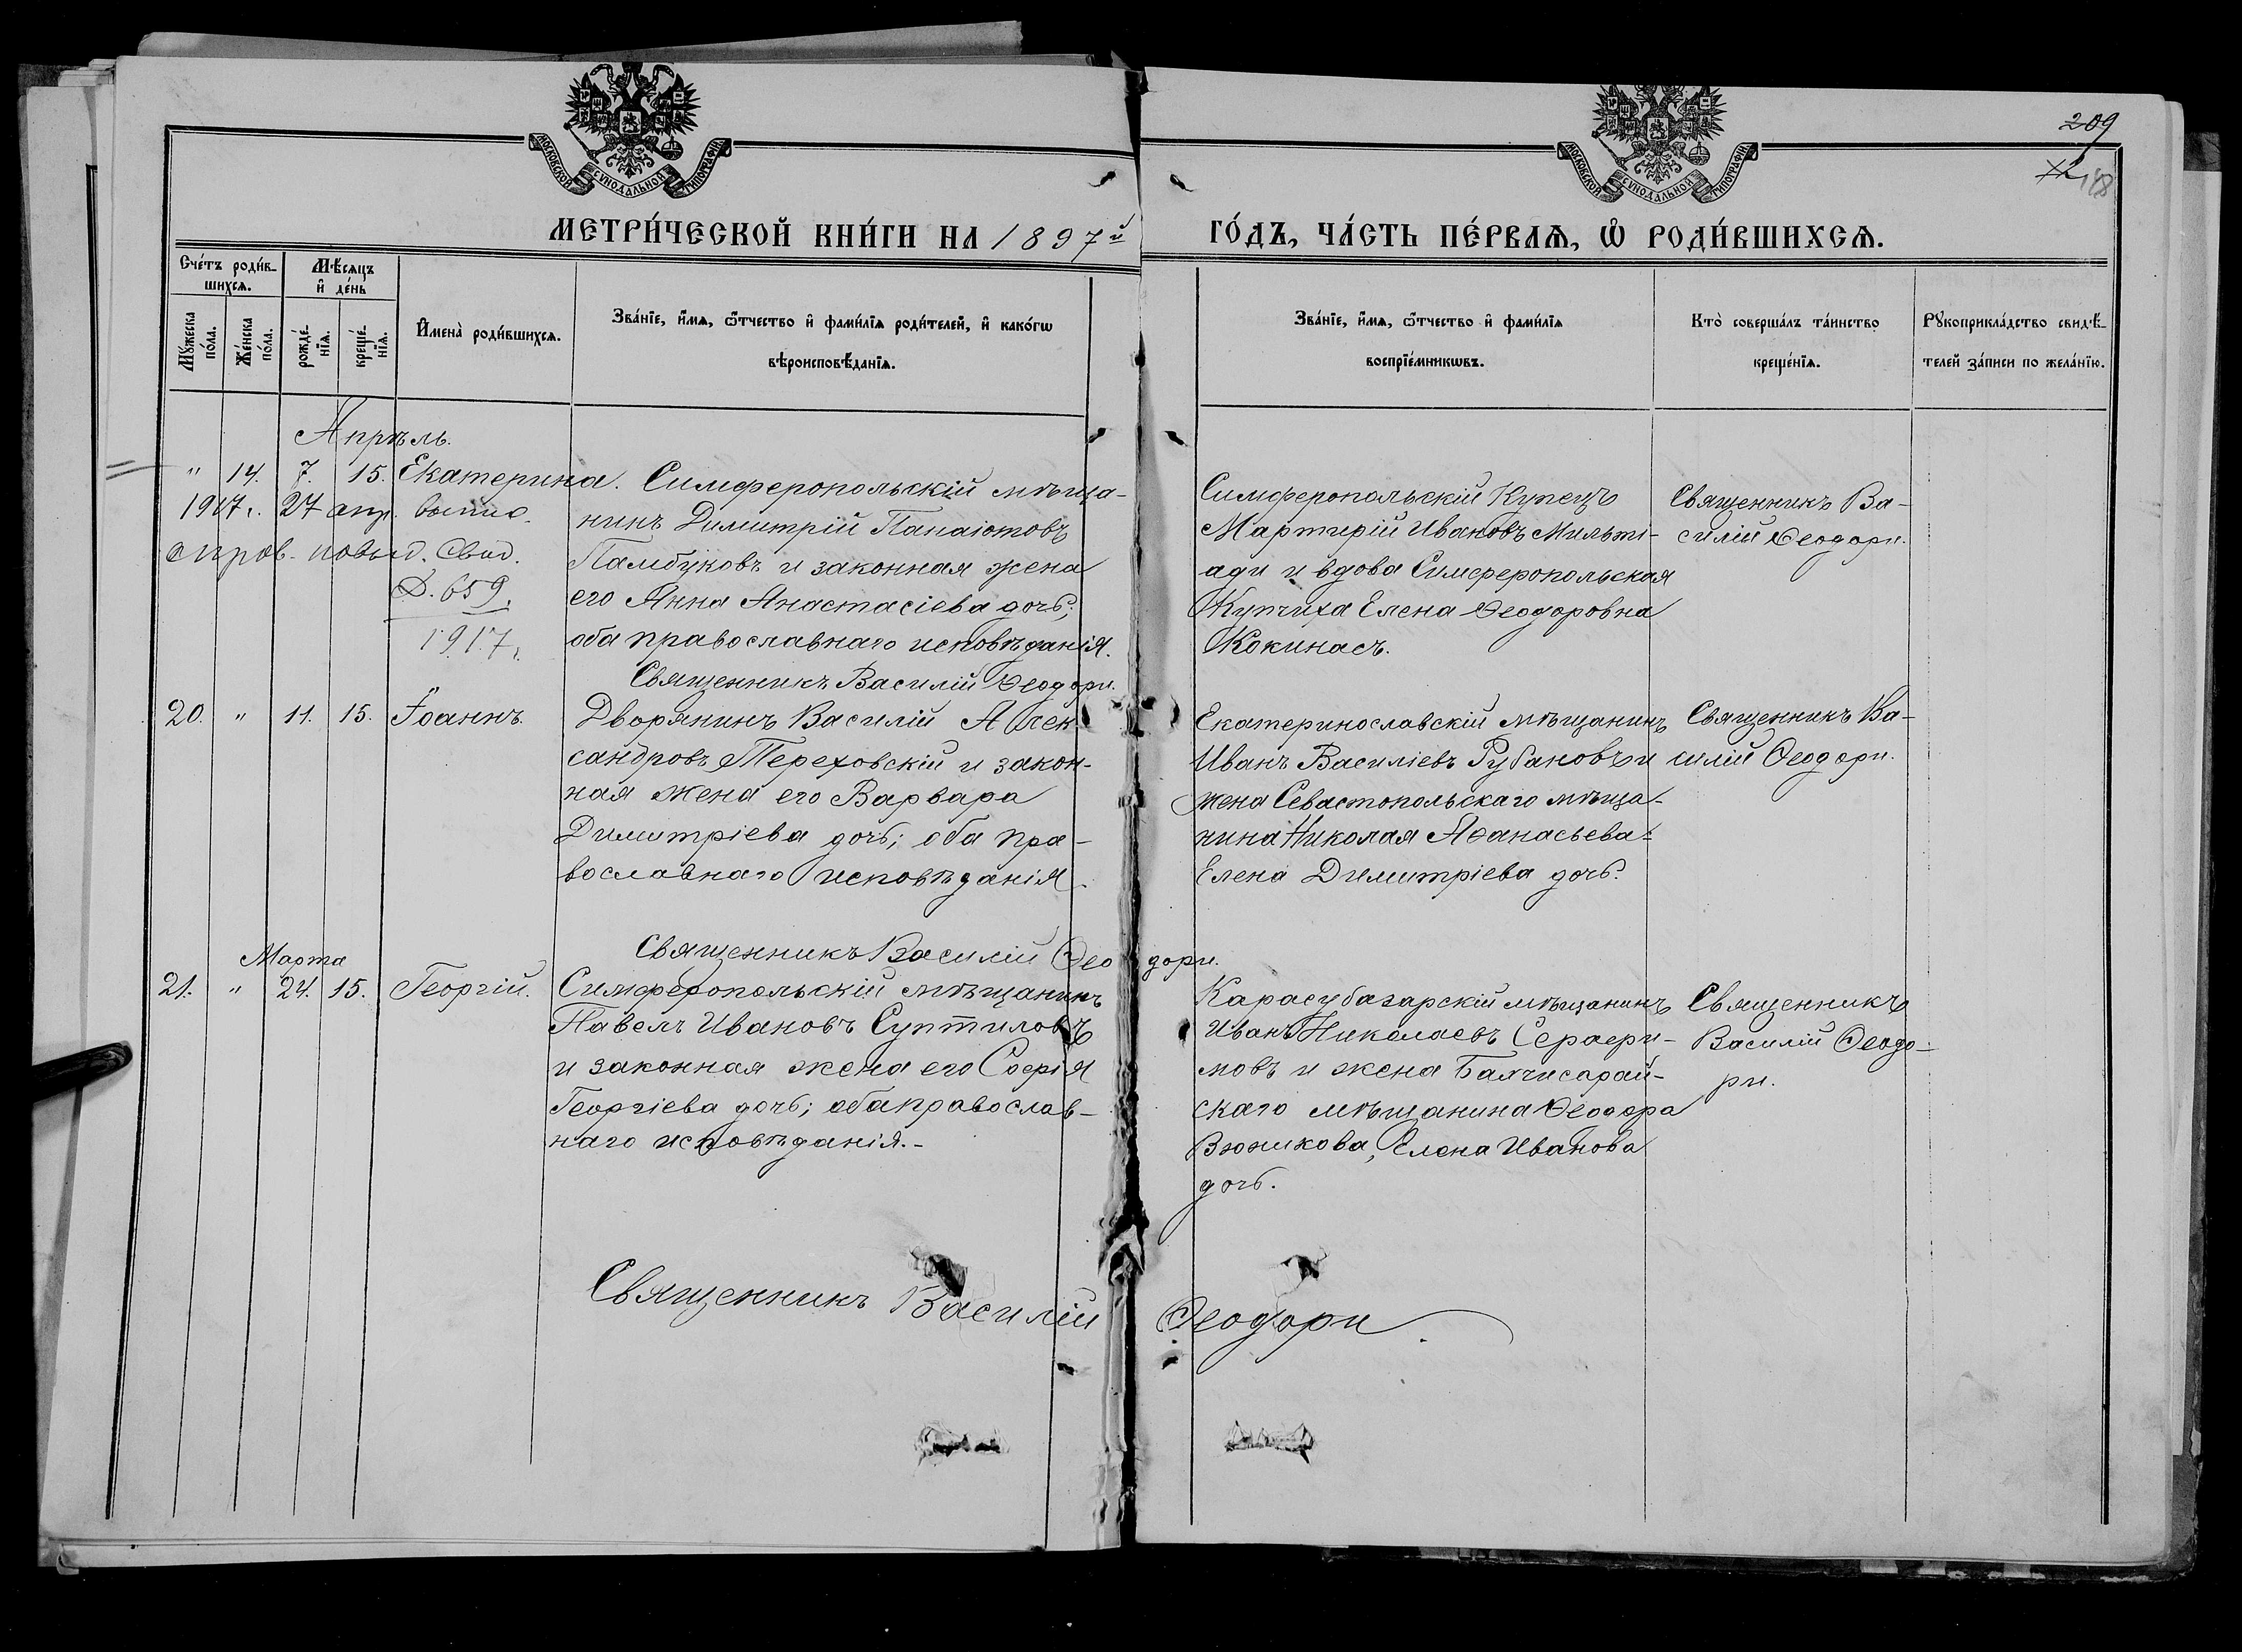 209
148
МОСКОВСКОЙ СѴНОДАЛЬНОЙ ТИПОГРАФІИ
МОСКОВСКОЙ СѴНОДАЛЬНОЙ ТИПОГРАФІИ
МЕТРИ́ЧЕСКОЙ КНИ́ГИ НА 1897й
ГО́ДЪ, ЧА́СТЬ ПЕ́РВАѦ, Ѡ҆ РОДИ́ВШИХСѦ.
Сче́тъ роди́в-
шихсѧ.
Мѣ́сѧцъ
и҆ де́нь
Мꙋ́жеска
по́ла.
Же́нска
по́ла.
рожде́-
нїѧ.
креще́-
нїѧ.
И҆мена̀ роди́вшихсѧ.
Зва́нїе, и҆́мѧ, ѻ҆́тчество и҆ фами́лїѧ роди́телей, и҆ како́гѡ
вѣроисповѣ́данїѧ.
Зва́нїе, и҆́мѧ, ѻ҆́тчество и҆ фами́лїѧ
воспрїе́мникѡвъ.
Кто̀ соверша́лъ та́инство
креще́нїѧ.
Рꙋкоприкла́дство свидѣ́-
телей за́писи по жела́нїю.
Апрѣль.
" 14. 7. 15. Екатерина. Симферопольскій мѣща-
нинъ Димитрій Панаіотовъ
Памбуковъ и законная жена
его Анна Анастасіева дочь;
оба православнаго исповѣданія.
Священникъ Василій Ѳеодори.
1917г. 27 апр. выпис.
Свид.
659.
1917г.
Симферопольскій Купецъ
Мартирій Ивановъ Мильті-
ади и вдова Симферопольская
Купчиха Елена Ѳеодоровна
Кокинасъ.
Священникъ Ва-
силій Ѳеодори.
20. " 11. 15. Іоаннъ. Дворянинъ Василій Алек-
сандровъ Тереховскій и закон-
ная жена его Варвара
Димитріева дочь; оба пра-
вославнаго исповѣданія.
Священникъ Василій Ѳеодори.
Екатеринославскій мѣщанинъ
Иванъ Василіевъ Рубановъ и
жена Севастопольскаго мѣща-
нина Николая Аѳанасьева-
Елена Димитріева дочь.
Священникъ Ва-
силій Ѳеодори.
Марта
21. " 24. 15. Георгій. Симферопольскій мѣщанинъ
Павелъ Ивановъ Суптиловъ
и законная жена его Софія
Георгіева дочь; оба православ-
наго исповѣданія.-
Карасубазарскій мѣщанинъ
Иванъ Николаевъ Серафи-
мовъ и жена Бахчисарай-
скаго мѣщанина Ѳеодора
Вюникова, Елена Иванова
дочь.
Священникъ
Василій Ѳеодо-
ри.
Священникъ Василій Ѳеодори.